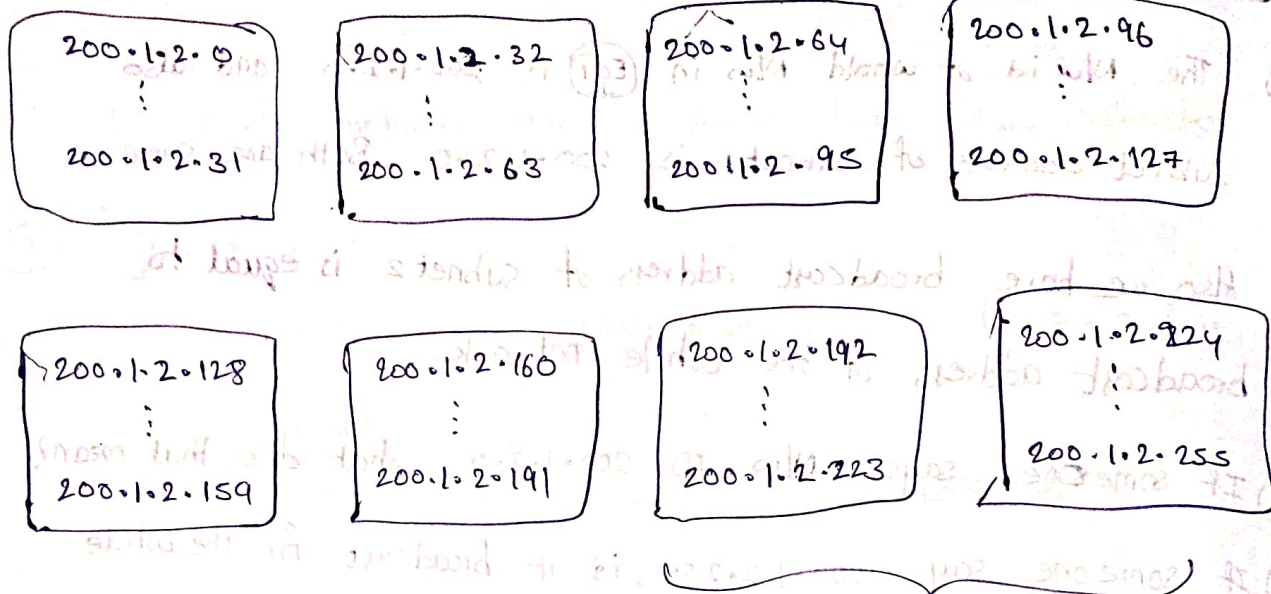 200.1.2.0
⋮
200.1.2.31
200.1.2.32
⋮
200.1.2.63
200.1.2.64
⋮
200.1.2.95
200.1.2.96
⋮
200.1.2.127
200.1.2.128
⋮
200.1.2.159
200.1.2.160
⋮
200.1.2.191
200.1.2.192
⋮
200.1.2.223
200.1.2.224
⋮
200.1.2.255